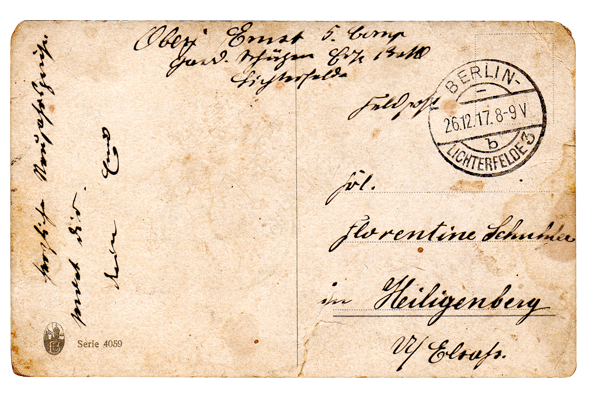 Oberj Ernst 5. Comp
Gard. Schützen Ers. Batt
Lichterfelde
Feldpost
BERLIN-
26.12.17. 8-9 V
b
LICHTERFELDE 3
Frl.
Florentine Schuhler
in Heiligenberg
U/ Elsass.
herzliche Neujahrsgrüße
sendet dir
dein
Serie 4059